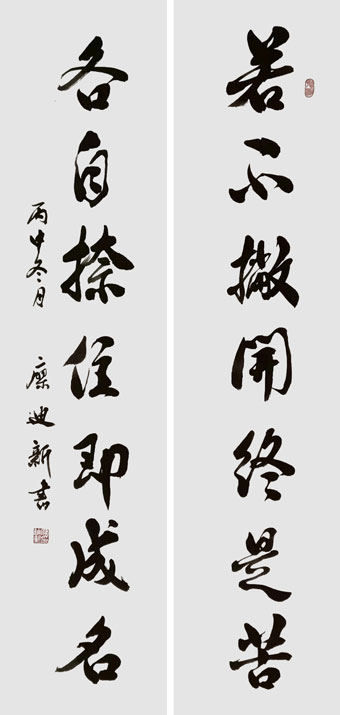 若不撇開終是苦
各自捺住即成名
丙申冬月
迪新書